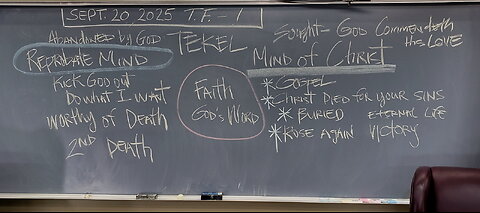 SEPT. 20, 2025 T.F. - 1
ABANDONED by GOD
REPROBATE MIND
KICK GOD OUT
DO WHAT I WANT
WORTHY OF DEATH
2ND DEATH
TEKEL
FAITH
GOD'S WORD
Sought - GOD COMMENDETH
His LOVE
MIND OF CHRIST
* GOSPEL
* CHRIST DIED FOR YOUR SINS
* BURIED ETERNAL LIFE
* ROSE AGAIN VICTORY